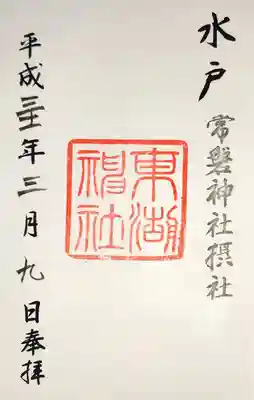 水戸
常磐神社摂社
東湖
神社
平成三十一年三月九日奉拝